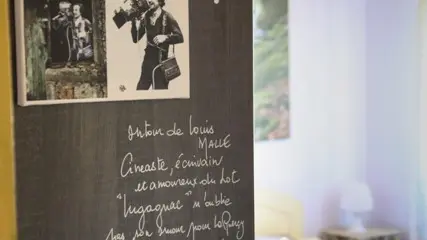 Autour de Louis
MALLE
Cinéaste, écrivain
et amoureux du Lot
"Lugagnac" n'oublie
pas son amour pour le Quercy